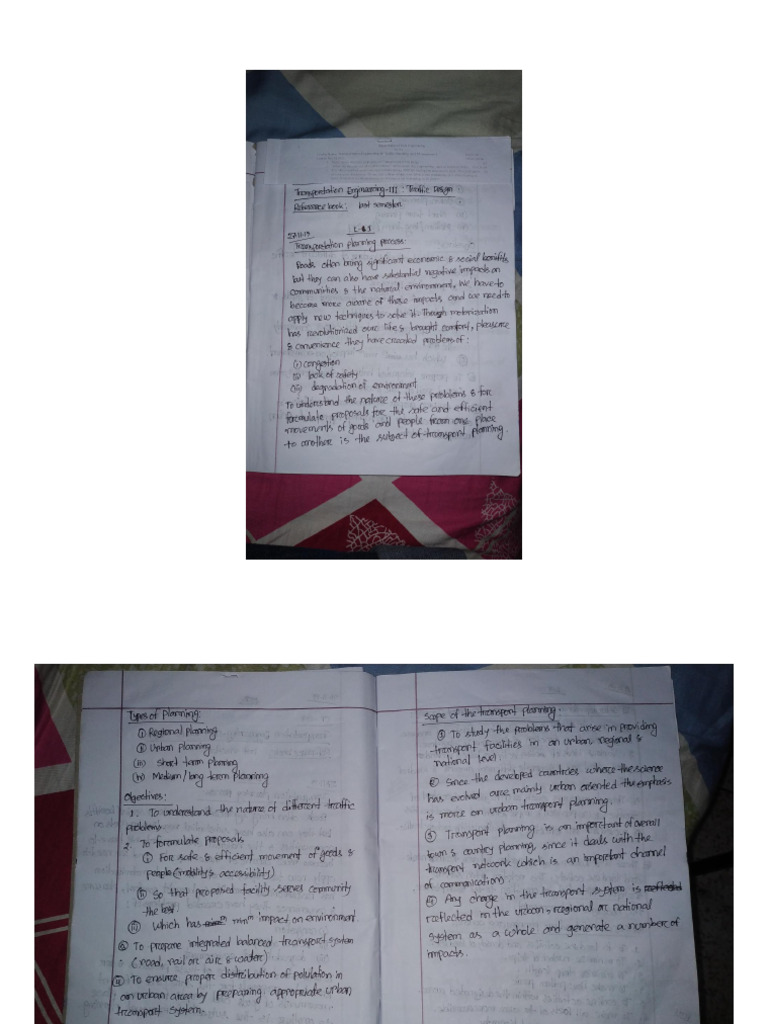 Transportation Engineering-III : Traffic Design
Reference book: last semester
L-01
Transportation planning process:
Roads often bring significant economic & social benefits,
but they can also have substantial negative impacts on
communities & the natural environment. We have to
become more aware of these impacts and we need to
apply new techniques to solve it. Though motorization
has revolutionized our life & brought comfort, pleasure
& convenience they have created problems of :
(i) congestion
(ii) lack of safety
(iii) degradation of environment
To understand the nature of these problems & for
formulate proposals for the safe and efficient
movements of goods and people from one place
to another is the subject of transport planning.
Types of Planning:
(i) Regional planning
(ii) Urban planning
(iii) Short term planning
(iv) Medium/long term planning
Objectives:
1. To understand the nature of different traffic
problems
2. To formulate proposals
(i) For safe & efficient movement of goods &
people (mobility & accessibility)
(ii) So that proposed facility serves community
the best.
(iii) Which has minm impact on environment
To propose integrated balanced transport system
(road, rail or air & water)
To ensure proper distribution of polulation in
an urban area by preparing appropriate urban
transport system.
Scope of the transport planning:
① To study the problems that arise in providing
transport facilities in an urban, regional &
national level.
② Since the developed countries where the science
has evolved are mainly urban oriented the emphasis
is more on urban transport planning.
③ Transport planning is an important of overall
town & country planning, since it deals with the
transport network which is an important channel
of communication.
④ Any change in the transport system is reflected
reflected in the urban, regional or national
system as a whole and generate a number of
impacts.